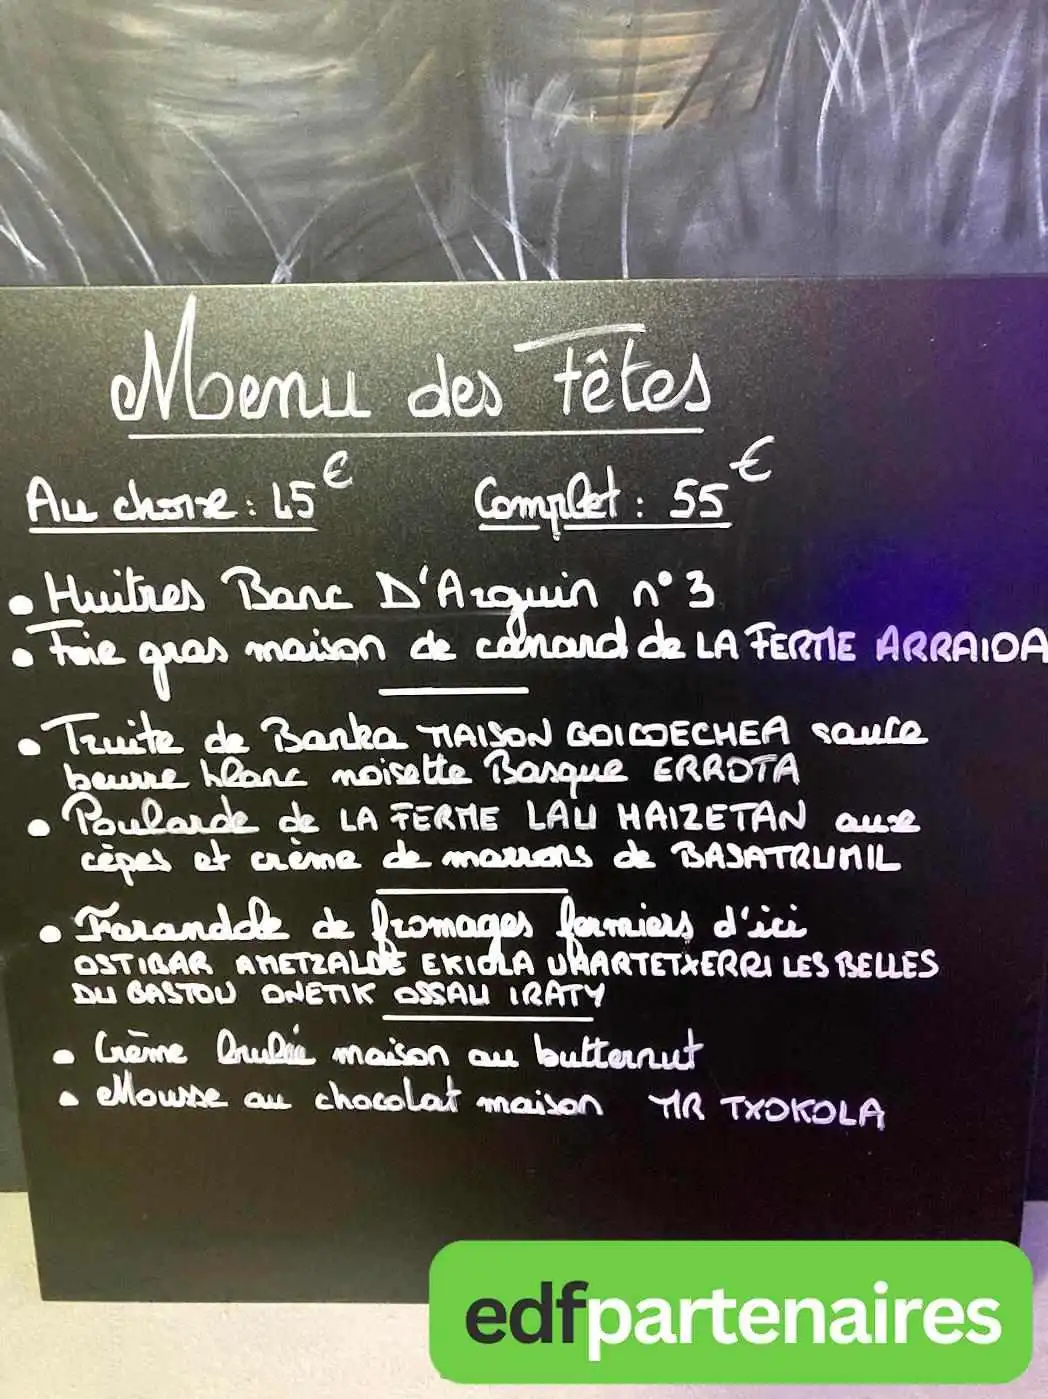 Menu des Fêtes
Au choix : 45€ Complet : 55€
• Huitres Banc D'Arguin n°3
• Foie gras maison de canard de LA FERME ARRAIOA
• Truite de Banka MAISON GOICOECHEA sauce
beurre blanc noisette Basque ERROTA
• Poularde de LA FERME LAU HAIZETAN aux
cèpes et crème de marrons de BASATRUMIL
• Farandole de fromages fermiers d'ici
OSTIBAR AMETZALDE EKIOLA UHARTETXERRI LES BELLES
DU BASTOU ONETIK OSSAU IRATY
• Crème brulée maison au butternut
• Mousse au chocolat maison MR TXOKOLA
edfpartenaires